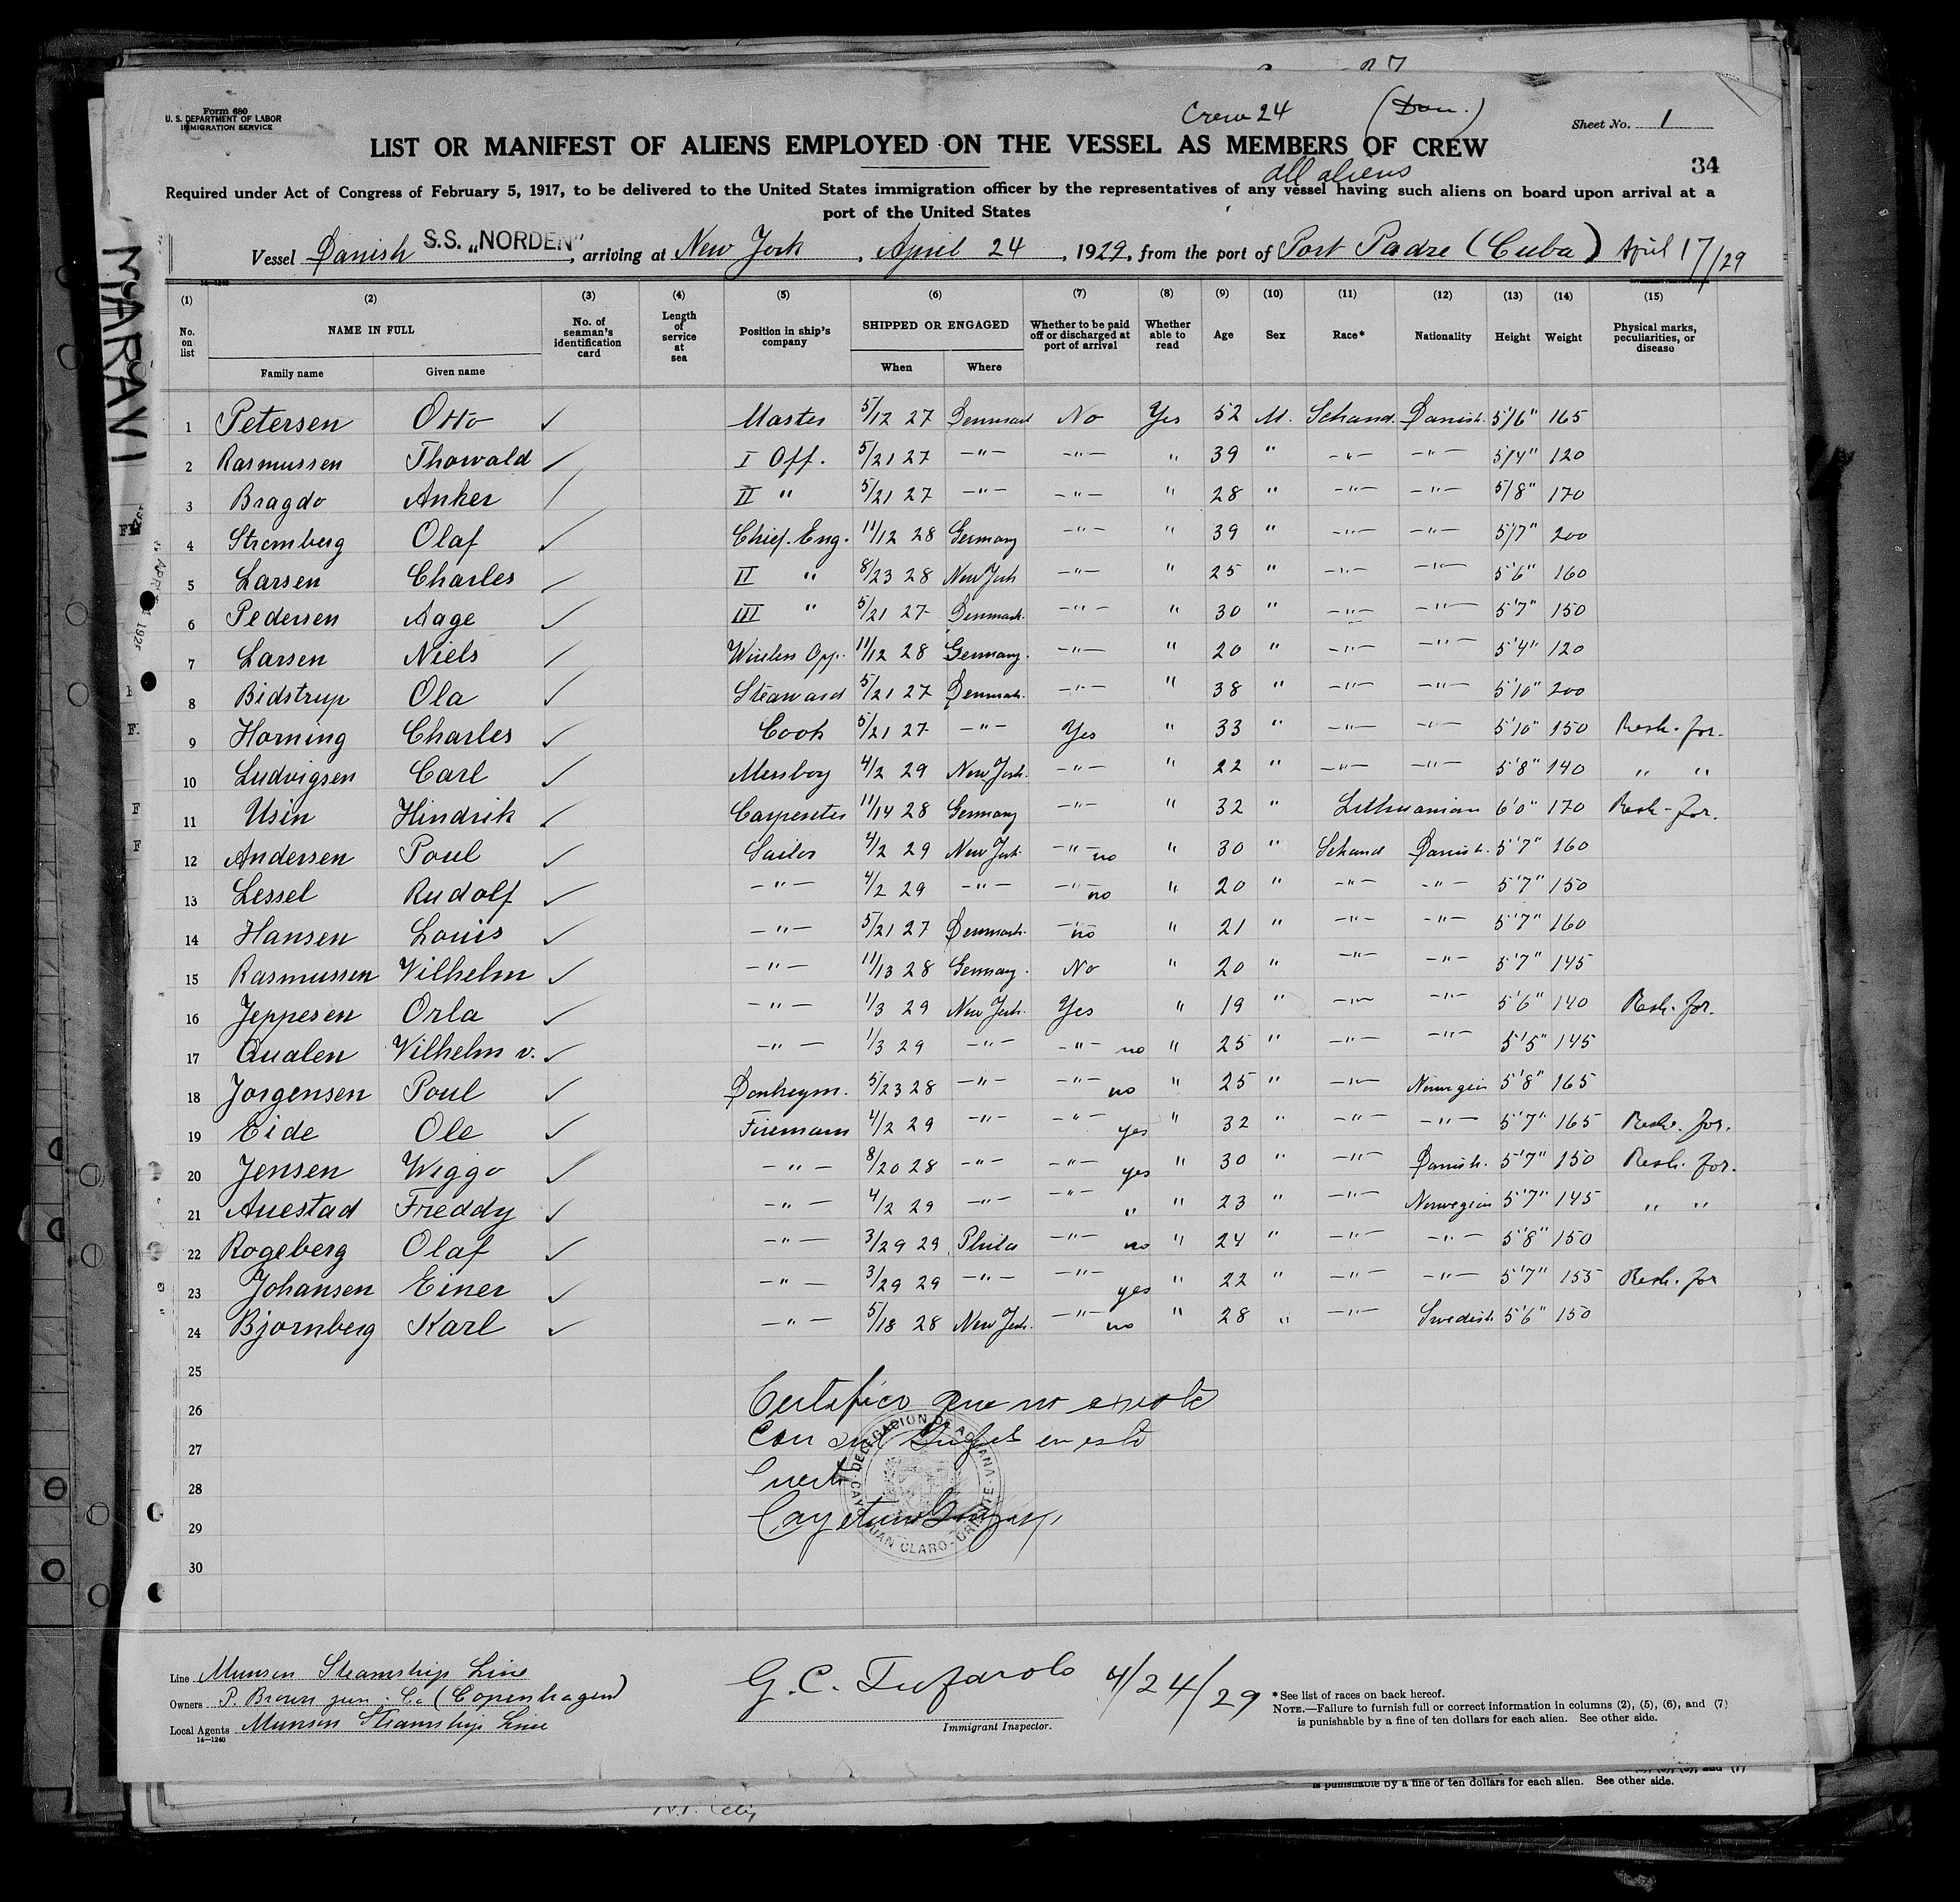 Form 680
U. S. DEPARTMENT OF LABOR
IMMIGRATION SERVICE
Crew 24 (Dan.)
Sheet No. 1
LIST OR MANIFEST OF ALIENS EMPLOYED ON THE VESSEL AS MEMBERS OF CREW
all aliens
34
Required under Act of Congress of February 5, 1917, to be delivered to the United States immigration officer by the representatives of any vessel having such aliens on board upon arrival at a
port of the United States
Vessel Danish S.S. „NORDEN", arriving at New York, April 24, 1929, from the port of Port Padre (Cuba) April 17/29
MARAVI
14—1240
(1) (2) (3) (4) (5) (6) (7) (8) (9) (10) (11) (12) (13) (14) (15)
No. on list NAME IN FULL No. of seaman's identification card Length of service at sea Position in ship's company SHIPPED OR ENGAGED Whether to be paid off or discharged at port of arrival Whether able to read Age Sex Race* Nationality Height Weight Physical marks, peculiarities, or disease
Family name Given name When Where
1 Petersen Otto ✓ Master 5/12 27 Denmark No Yes 52 M. Schand. Danish. 5'6" 165
2 Rasmussen Thowald ✓ I Off. 5/21 27 -"- -"- " 39 " -"- -"- 5'4" 120
3 Bragdo Anker ✓ II " 5/21 27 -"- -"- " 28 " -"- -"- 5'8" 170
4 Stromberg Olaf ✓ Chief. Eng. 11/12 28 Germany -"- " 39 " -"- -"- 5'7" 200
5 Larsen Charles ✓ II " 8/23 28 New York -"- " 25 " -"- -"- 5'6" 160
6 Pedersen Aage ✓ III " 5/21 27 Denmark. -"- " 30 " -"- -"- 5'7" 150
7 Larsen Niels ✓ Wireless Opp. 11/12 28 Germany. -"- " 20 " -"- -"- 5'4" 120
8 Bidstrup Ola ✓ Steaward 5/21 27 Denmark. -"- " 38 " -"- -"- 5'10" 200
9 Horning Charles ✓ Cook 5/21 27 -"- Yes " 33 " -"- -"- 5'10" 150 Resh. for.
10 Ludvigsen Carl ✓ Messboy 4/2 29 New York. -"- " 22 " -"- -"- 5'8" 140 " "
11 Usin Hindrik ✓ Carpenter 11/14 28 Germany -"- " 32 " Lithuanian 6'0" 170 Resh. for.
12 Andersen Poul ✓ Sailor 4/2 29 New York -"- no " 30 " Schand Danish. 5'7" 160
13 Lessel Rudolf ✓ -"- 4/2 29 -"- -"- no " 20 " -"- -"- 5'7" 150
14 Hansen Louis ✓ -"- 5/21 27 Denmark. -"- no " 21 " -"- -"- 5'7" 160
15 Rasmussen Vilhelm ✓ -"- 11/13 28 Germany. No " 20 " -"- -"- 5'7" 145
16 Jeppesen Orla ✓ -"- 1/3 29 New York. Yes " 19 " -"- -"- 5'6" 140 Resh. for.
17 Qualen Vilhelm v. ✓ -"- 1/3 29 -"- -"- no " 25 " -"- -"- 5'5" 145
18 Jorgensen Poul ✓ Donkeym. 5/23 28 -"- -"- no " 25 " -"- Norwegian 5'8" 165
19 Eide Ole ✓ Firemann 4/2 29 -"- -"- yes " 32 " -"- -"- 5'7" 165 Resh. for.
20 Jensen Wiggo ✓ -"- 8/20 28 -"- -"- yes " 30 " -"- Danish. 5'7" 150 Resh. for.
21 Auestad Freddy ✓ -"- 4/2 29 -"- -"- " " 23 " -"- Norwegian 5'7" 145 " "
22 Rogeberg Olaf ✓ -"- 3/29 29 Phila -"- no " 24 " -"- -"- 5'8" 150
23 Johansen Einer ✓ -"- 3/29 29 -"- -"- yes " 22 " -"- -"- 5'7" 155 Resh. for
24 Bjornberg Karl ✓ -"- 5/18 28 New York. -"- no " 28 " -"- Swedish 5'6" 150
25
26 Certifico que no existe
27 en este
28
29 Cayetano
30
DELEGACION DE ADUANA
CAYO JUAN CLARO - ORIENTE
Line Munson Steamship Line
Owners P. Brown jun. Co (Copenhagen)
Local Agents Munson Steamship Line
14—1240
G. C. Tufarolo 4/24/29
Immigrant Inspector.
*See list of races on back hereof.
NOTE.—Failure to furnish full or correct information in columns (2), (5), (6), and (7)
is punishable by a fine of ten dollars for each alien. See other side.
is punishable by a fine of ten dollars for each alien. See other side.